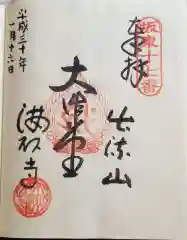 坂東十七番
奉拝
出流山
大御堂
満願寺
平成三十年
一月十六日